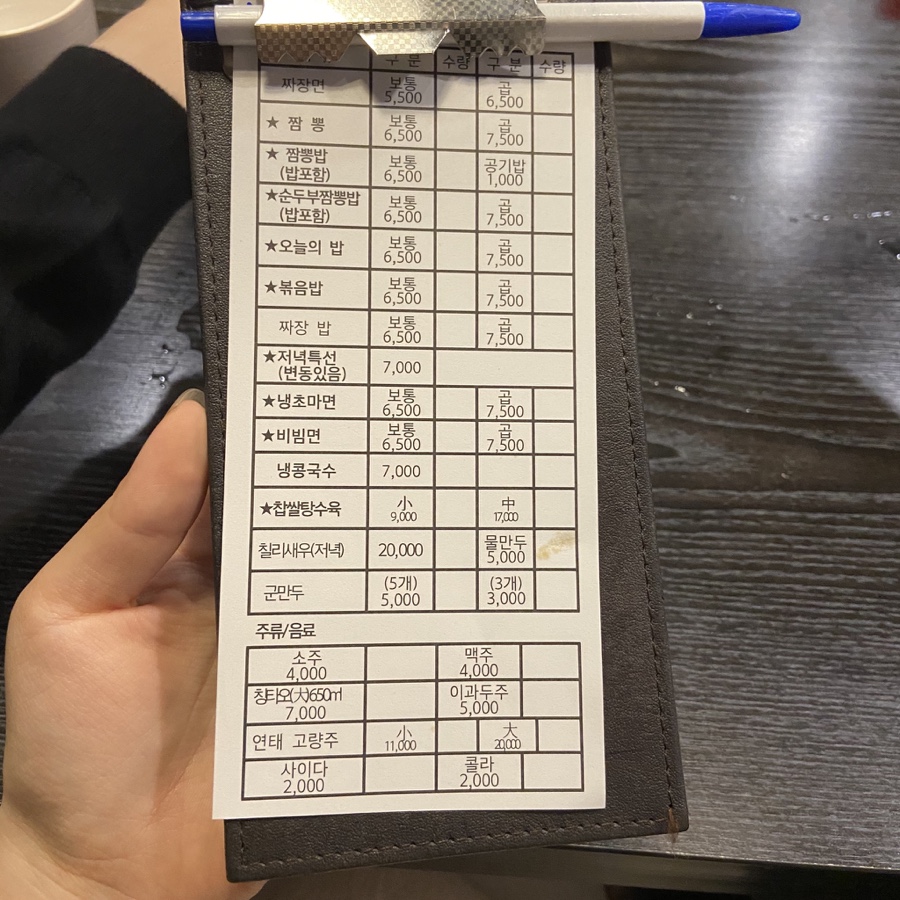 구 분 수량 구 분 수량
짜장면 보통 5,500 곱 6,500
★ 짬 뽕 보통 6,500 곱 7,500
★ 짬뽕밥 (밥포함) 보통 6,500 공기밥 1,000
★순두부짬뽕밥 (밥포함) 보통 6,500 곱 7,500
★오늘의 밥 보통 6,500 곱 7,500
★볶음밥 보통 6,500 곱 7,500
짜장 밥 보통 6,500 곱 7,500
★저녁특선 (변동있음) 7,000
★냉초마면 보통 6,500 곱 7,500
★비빔면 보통 6,500 곱 7,500
냉콩국수 7,000
★찹쌀탕수육 小 9,000 中 17,000
칠리새우(저녁) 20,000 물만두 5,000
군만두 (5개) 5,000 (3개) 3,000
주류/음료
소주 4,000 맥주 4,000
칭타오(大)650ml 7,000 이과두주 5,000
연태 고량주 小 11,000 大 20,000
사이다 2,000 콜라 2,000